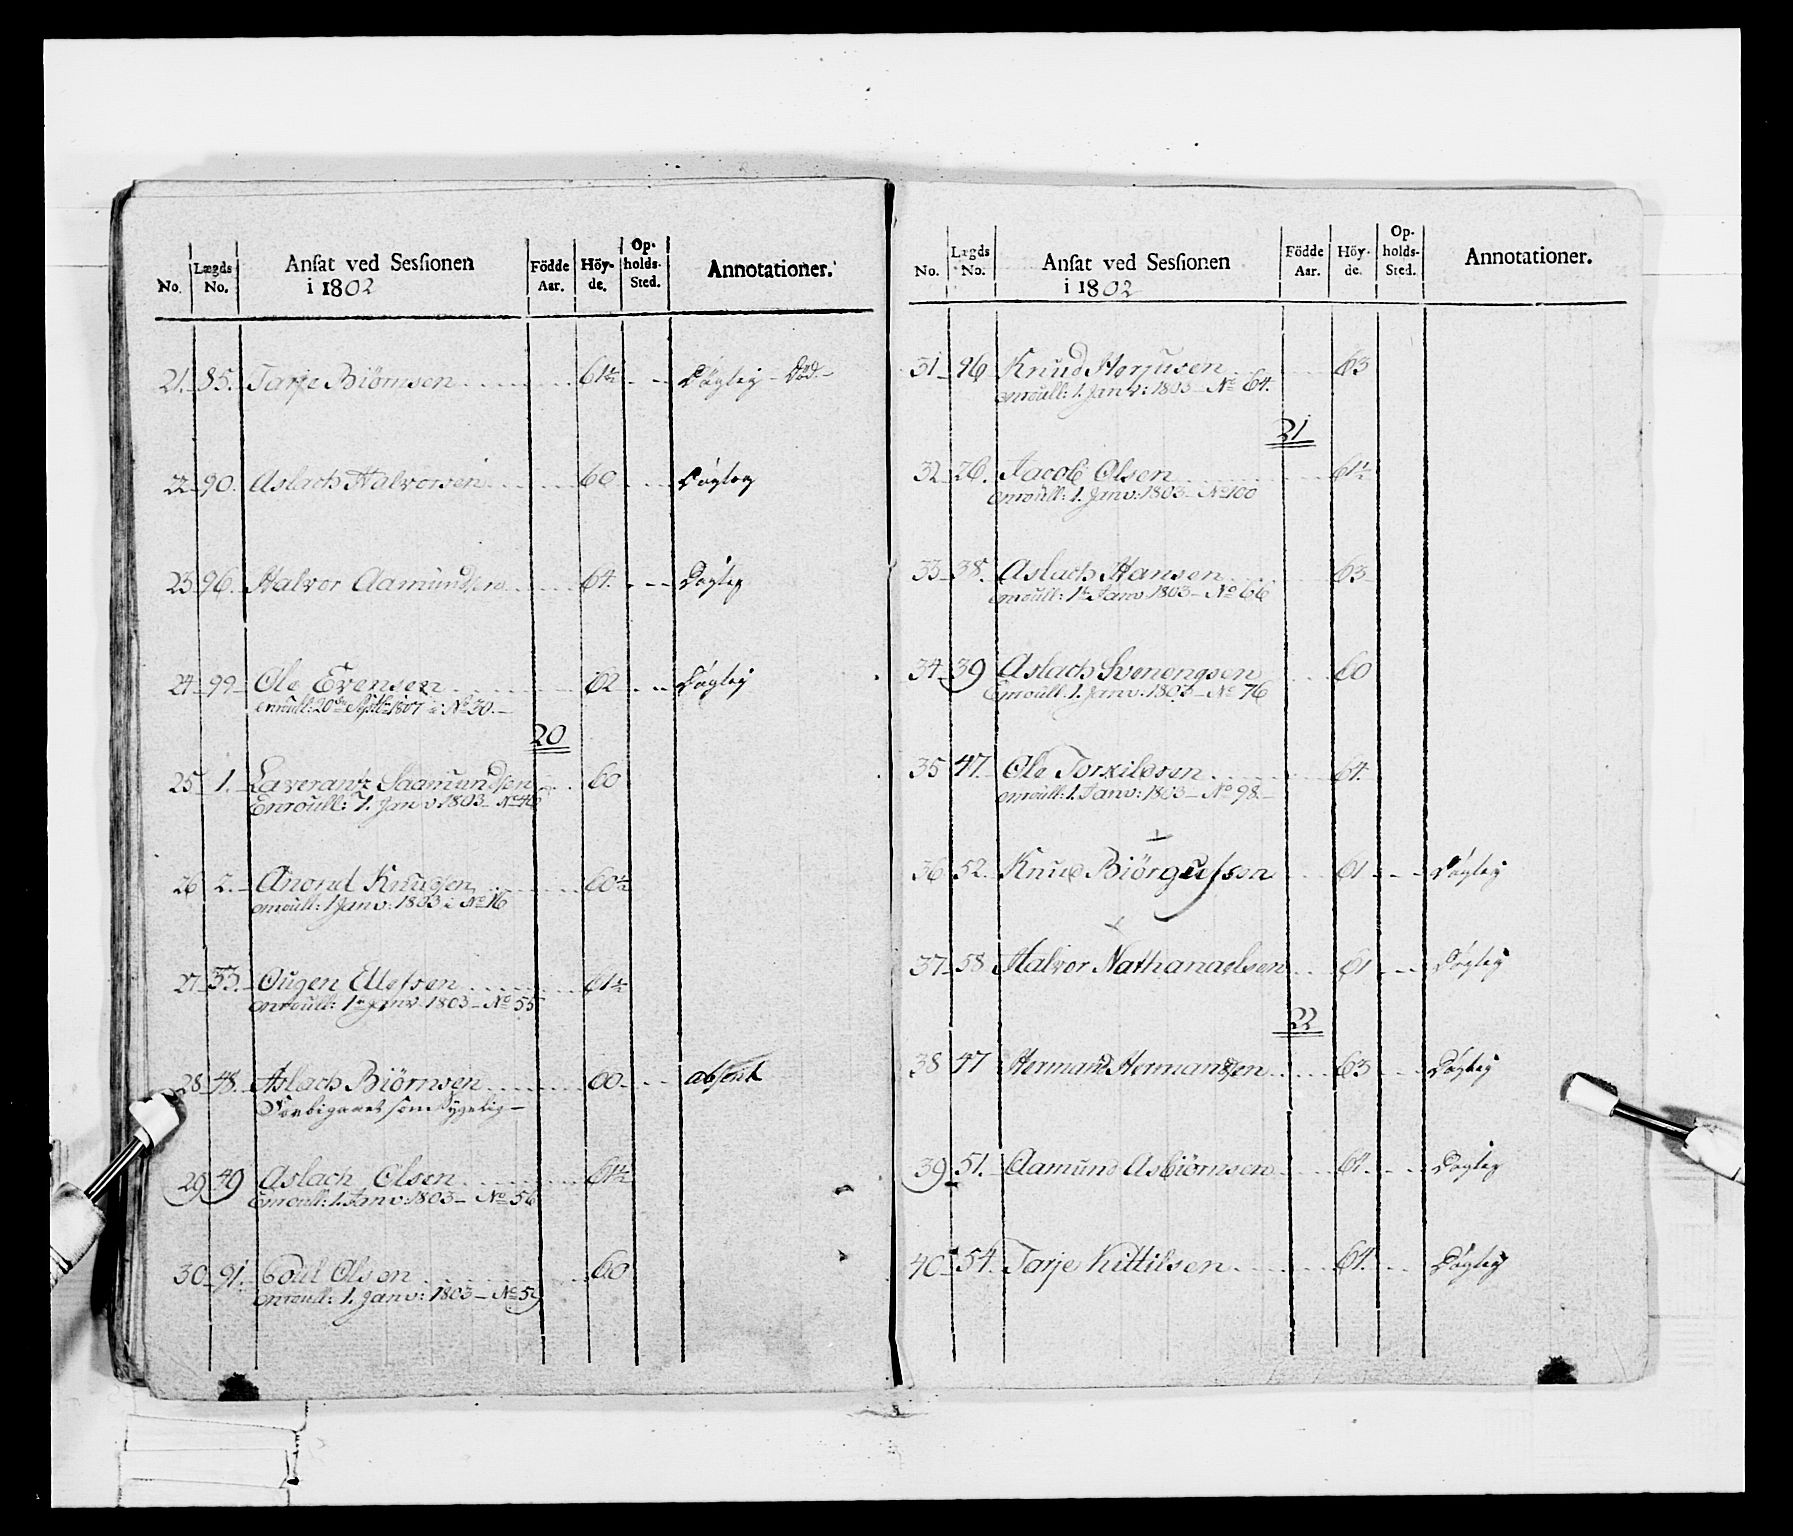 No. Lægds No. Ansat ved Sessionen i 1802 Födde Aar. Höyde. Opholds-Sted. Annotationer.
21. 85. Tarje Biörnsen 61½ Döglig - Död -
22. 90. Aslach Halvorsen 60 Döglig
23. 96. Halvor Aamundsen 64. Döglig
24. 99 Ole Evensen 62 Döglig
enroull: 20de Septbr 1807 a: No 30.
20
25 1. Laverantz Saamundsen 60
Enroull: 1. Janv: 1803 No 48
26 2. Anond Knudsen 60½
enroull: 1 Janv: 1803 No 16
27. 33. Ougen Ellefsen 61½
enroull: 1. Janv 1803 - No 55
28 48. Aslach Biörnsen 60 absent
Forbigaaet som Sygelig -
29 49 Aslach Olsen 61½
Enroull: 1. Janv: 1803 - No 56
30 91. Poul Olsen 60
enroull: 1. Janv: 1803 - No 52
No. Lægds No. Ansat ved Sessionen i 1802 Födde Aar. Höyde. Opholds-Sted. Annotationer.
31 96 Knud Herjusen 63
enroull: 1. Janv: 1803 - No 64.
21
32 26. Jacob Olsen 61½
enroull: 1. Janv: 1803 - No 100
33 38. Aslach Hansen 63
enroull: 1. Janv 1803 - No 66
34 39 Aslach Svenengsen 60
Enroull: 1. Janv. 1803 - No 76
35 47. Ole Torkilsen 64.
enroull: 1. Janv: 1803 - No 98 -
36 52. Knud Biörgulfsen 61 Döglig
37 58 Halvor Nathanaelsen 61 Döglig
22
38 47 Hermand Hermandsen 63 Döglig
39 51. Aamund Asbiörnsen 61. Döglig
40 54. Tarje Kittilsen 64. Döglig